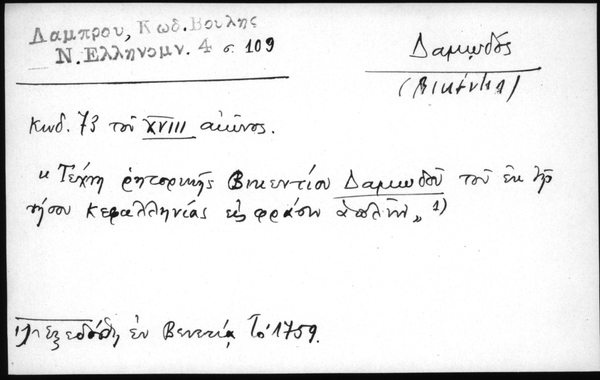 Λαμπρου, Κωδ. Βουλης
Ν. Ελληνομν. 4 σ. 109
Δαμῳδὸς
(Βικέντι)
Κωδ. 73 τοῦ XVIII αἰῶνος.
« Τέχνη ῥητορικῆς Βικεντίου Δαμῳδοῦ τοῦ ἐκ τῆς
νήσου Κεφαλληνίας εἰς φράσιν ἁπλῆν „ 1)
1) ἐξεδόθη ἐν Βενετίᾳ τῷ 1759.